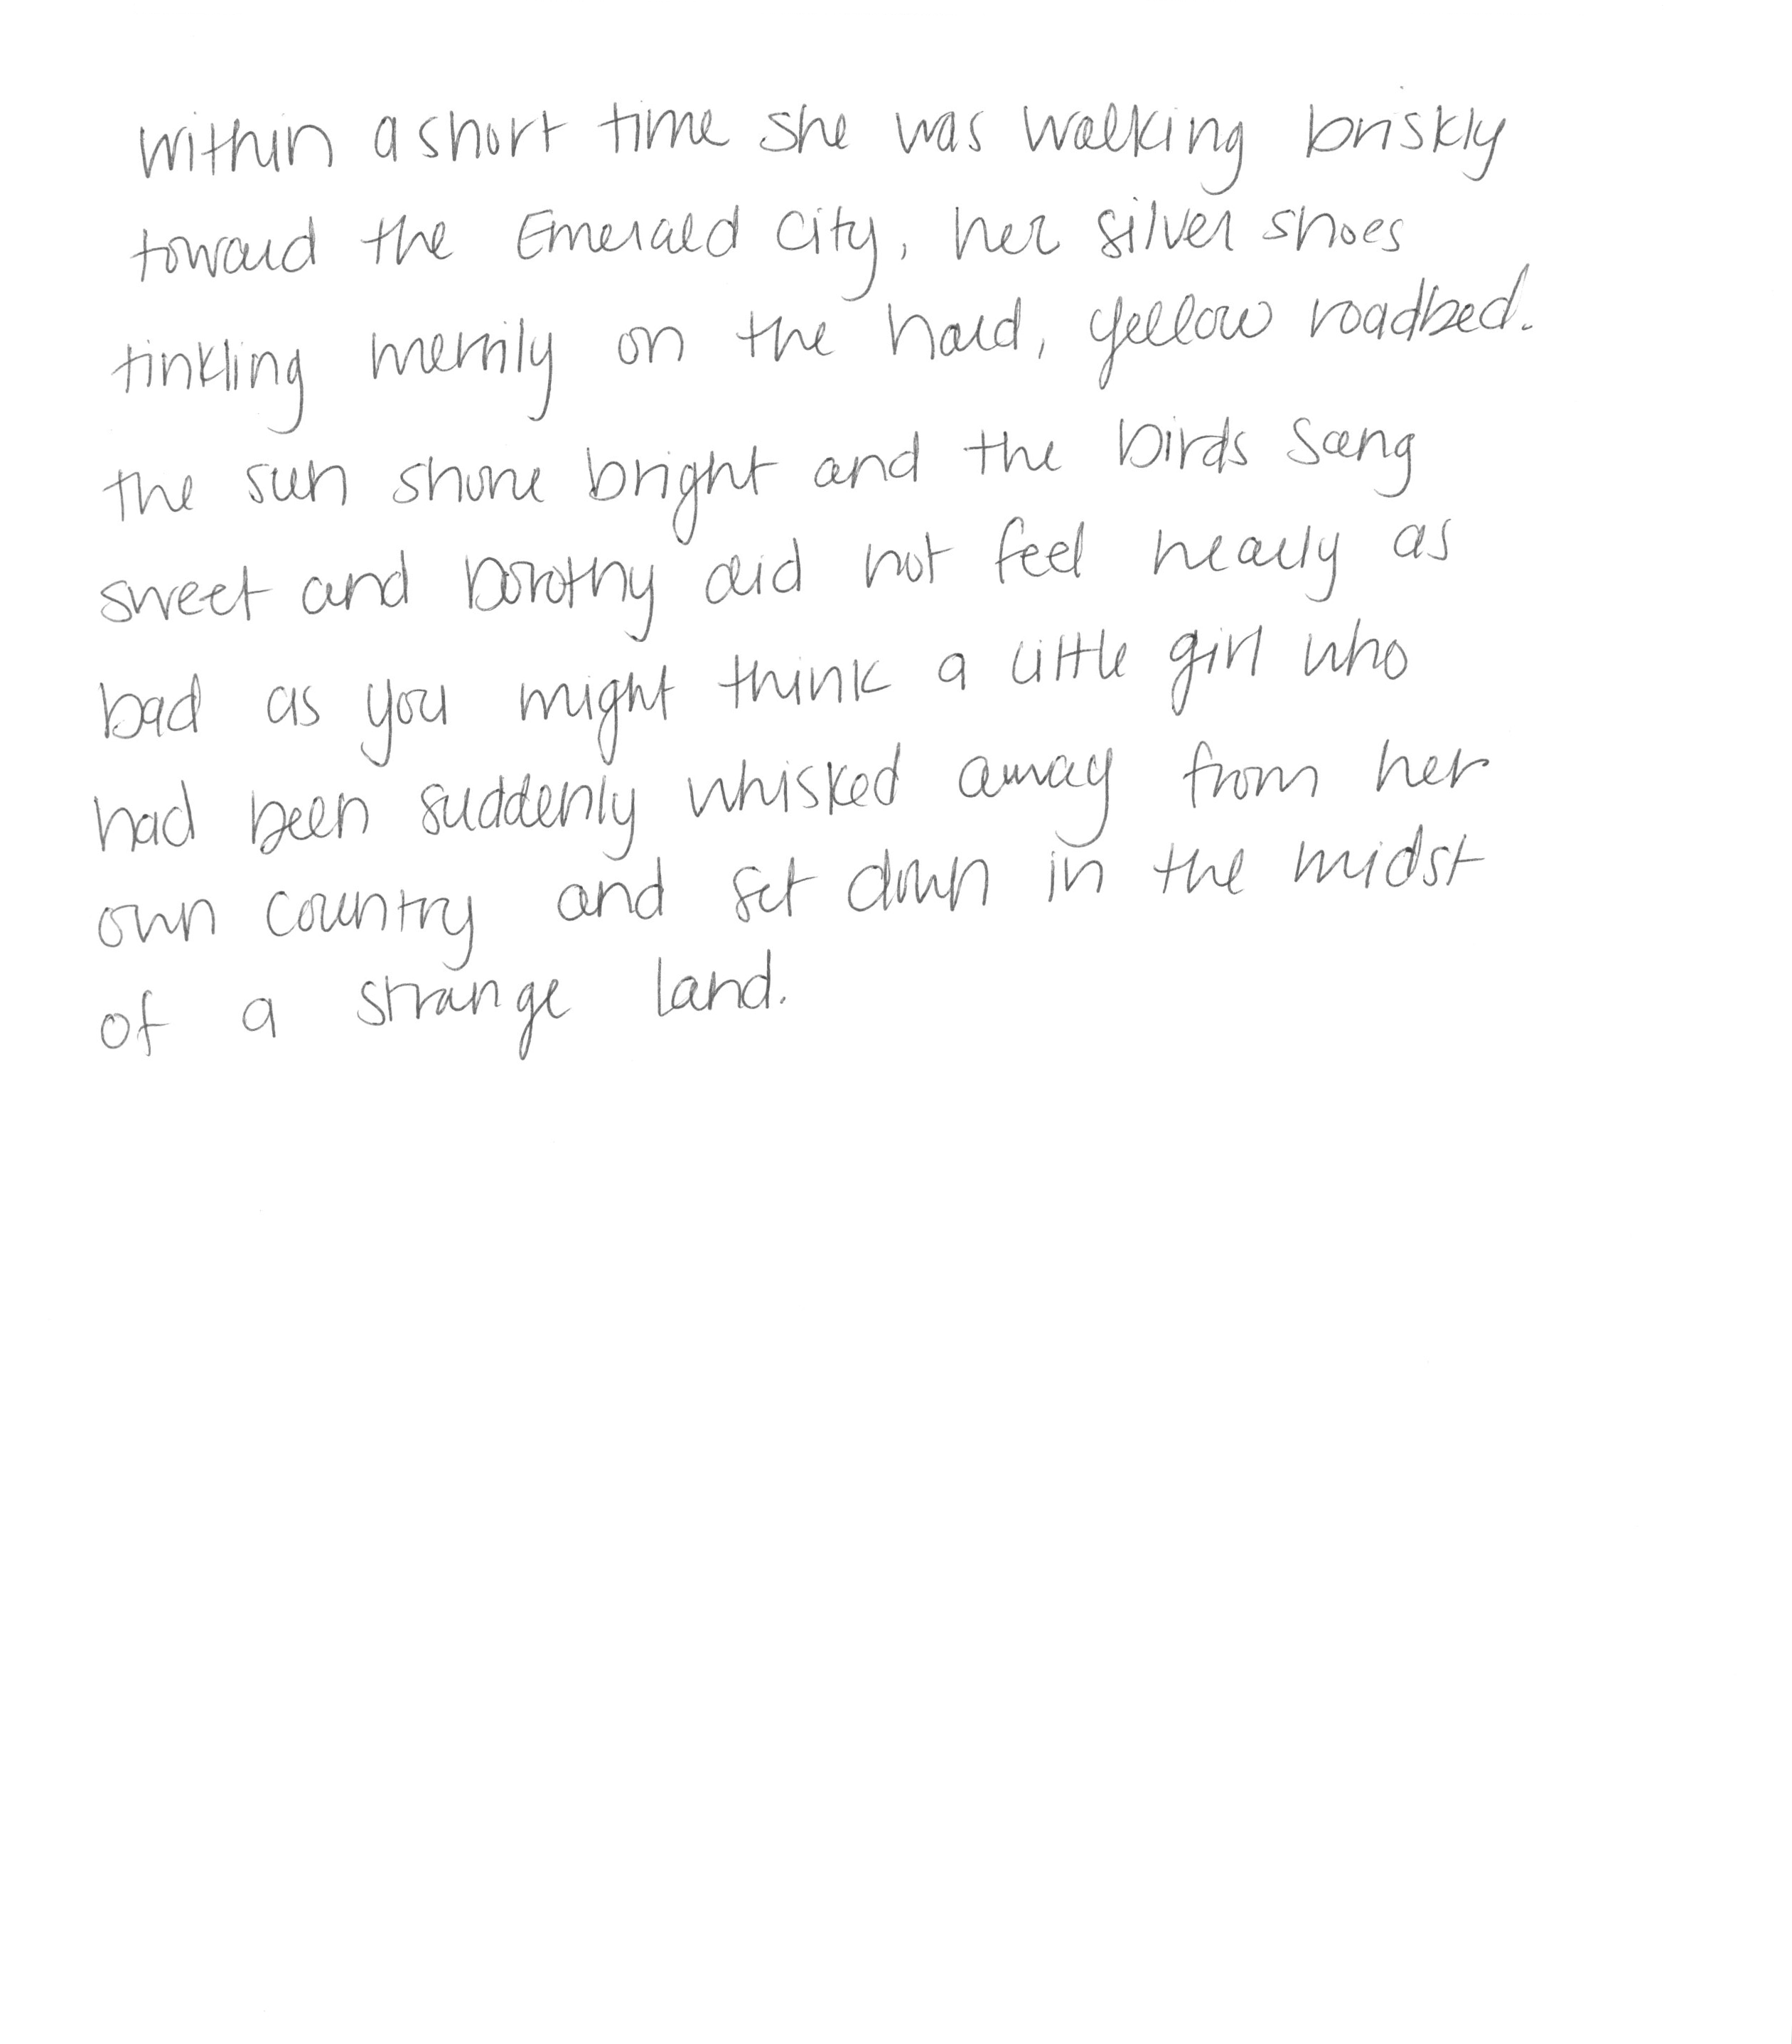 Within a short time she was walking briskly
toward the Emerald City, her silver shoes
tinkling merrily on the hard, yellow roadbed.
The sun shone bright and the birds sang
sweet and Dorothy did not feel nearly as
bad as you might think a little girl who
had been suddenly whisked away from her
own country and set down in the midst
of a strange land.